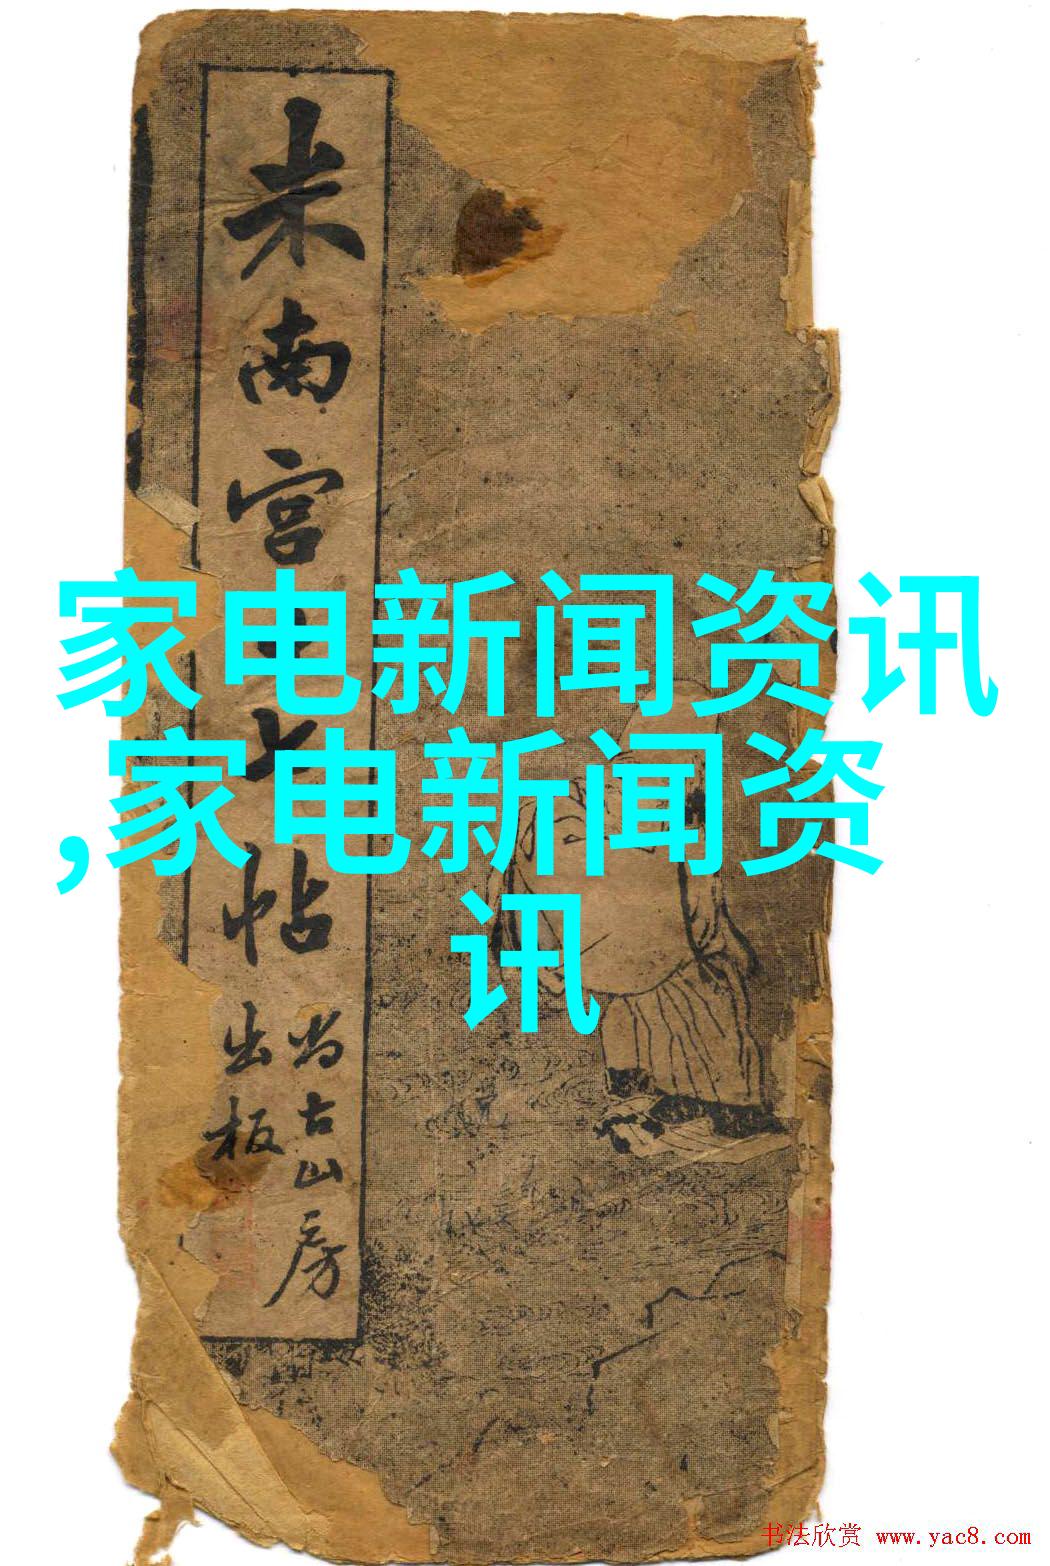 米南宫十七帖
尚古山房
出板
家电新闻资讯
,家电新闻资
讯
书法欣赏 www.yac8.com